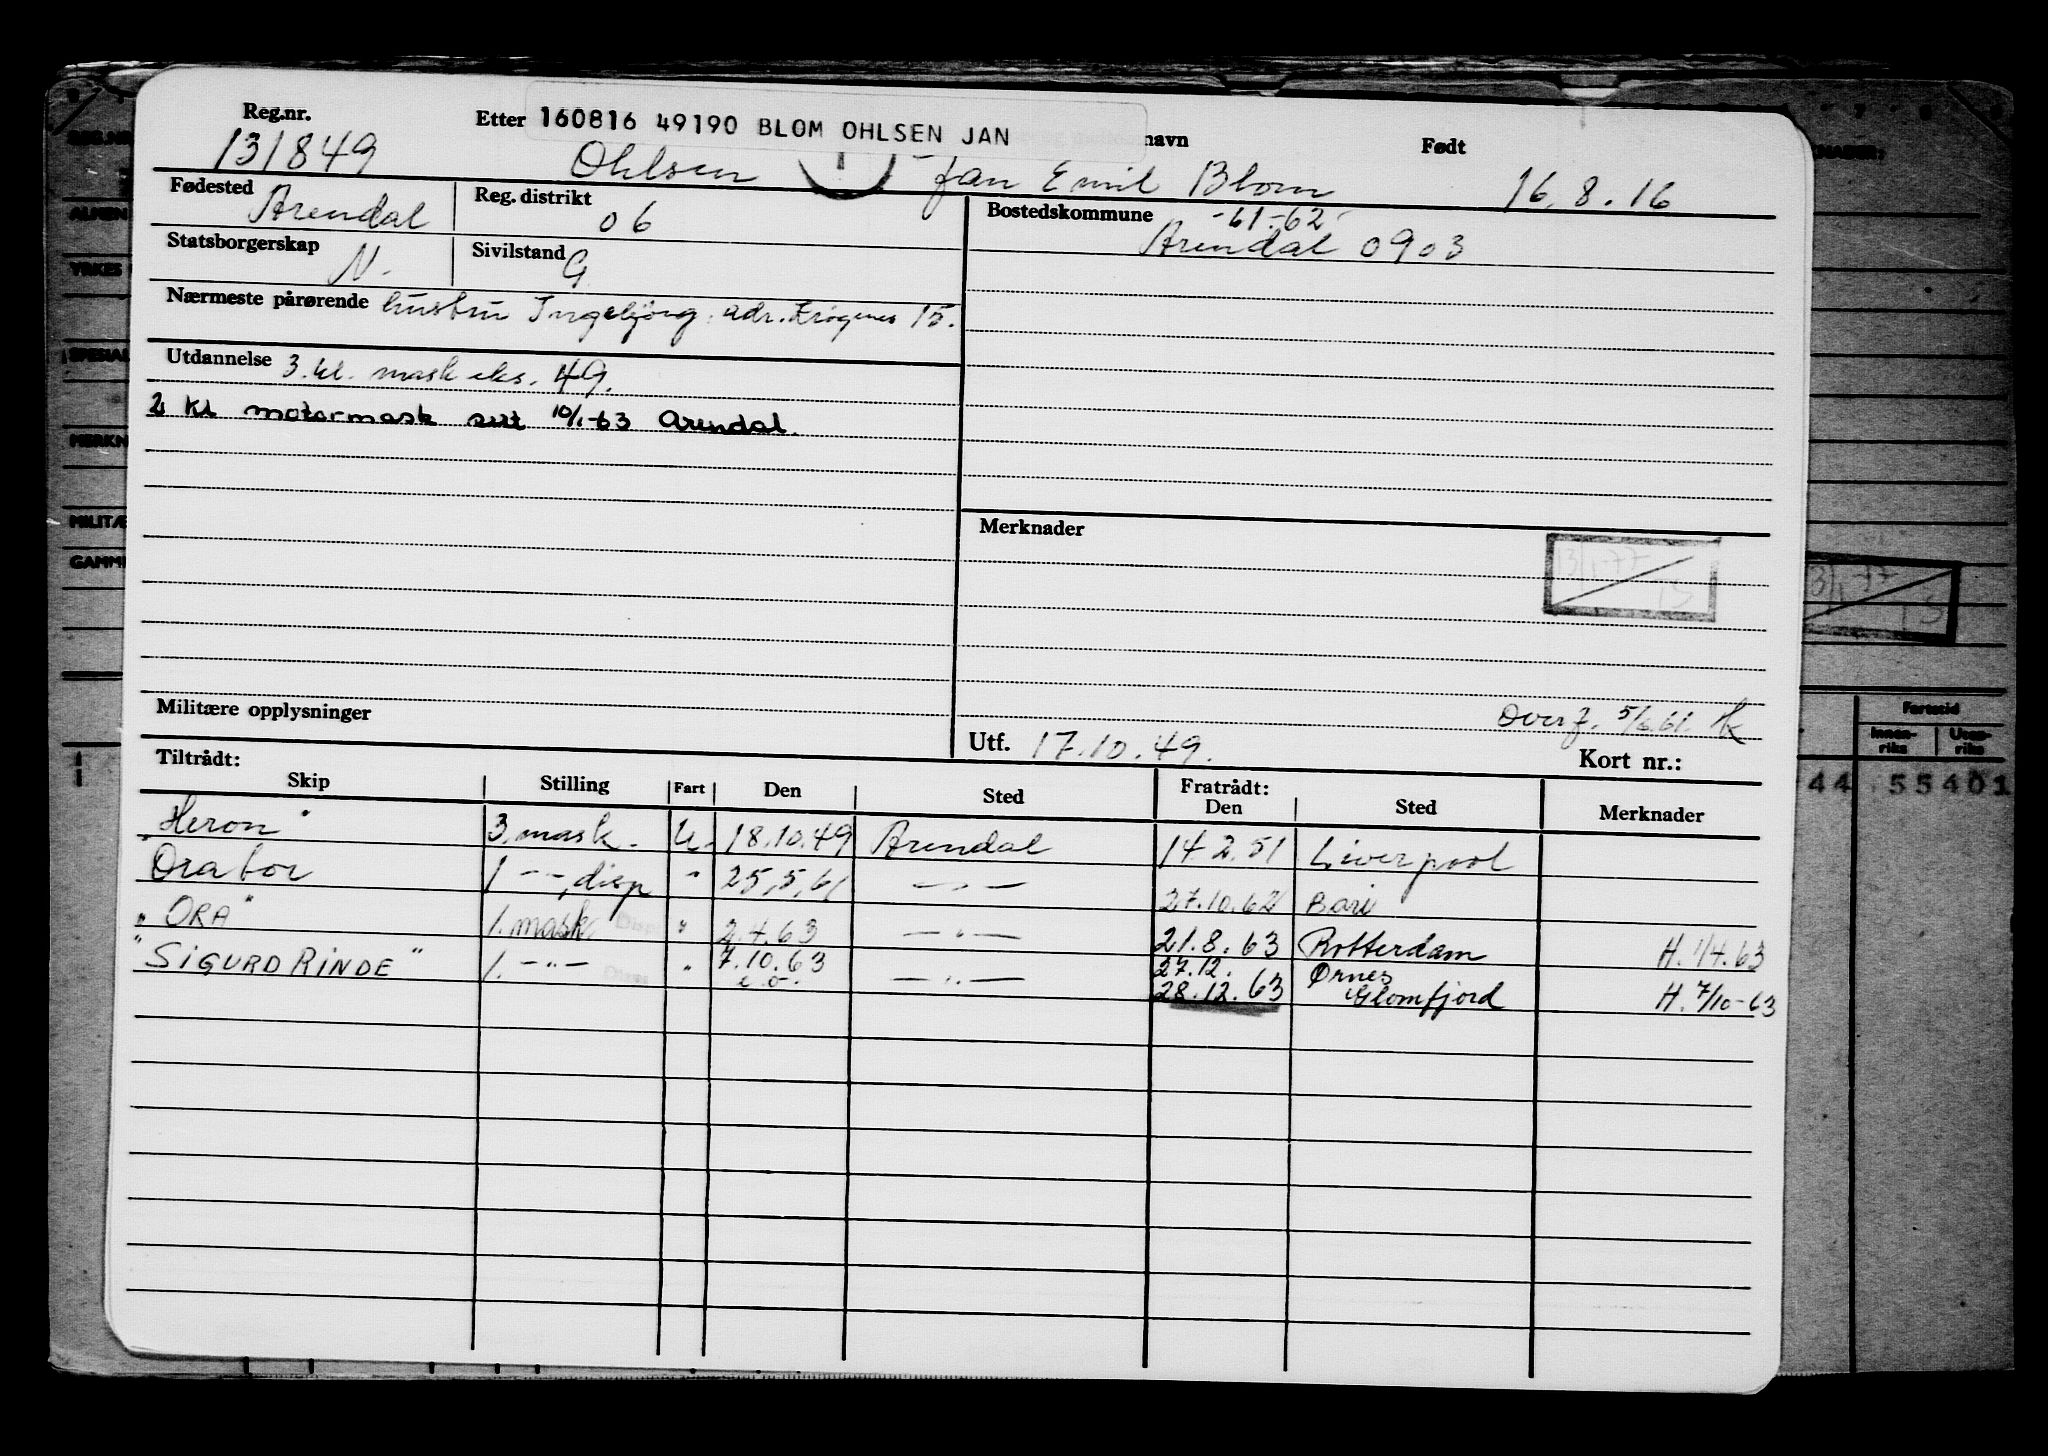 Reg.nr. Etter 160816 49190 BLOM OHLSEN JAN navn Født
131849 Ohlsen Jan Emil Blom 16.8.16
Fødested Arendal Reg. distrikt 06 Bostedskommune -61-62-
Arendal 0903
Statsborgerskap N. Sivilstand G
Nærmeste pårørende hustru Ingebjörg. adr. Krøgenes 15.
Utdannelse 3. kl. mask eks. 49.
2 kl motormask sert 10/1-63 Arendal.
Merknader
13/1-77
TS
Militære opplysninger
Overf. 5/6.61. HK
Utf. 17.10.49. Kort nr.:
Tiltrådt: Fratrådt:
Skip Stilling Fart Den Sted Den Sted Merknader
"Heron" 3. mask. U. 18.10.49 Arendal 14.2.51 Liverpool
Orator 1 -"-, disp " 25,5,61 -"- 27.10.62 Bari
"ORA" 1. mask. Disp " 2.4.63 -"- 21.8.63 Rotterdam H. 1/4.63
"SIGURD RINDE" 1. -"- " 7.10.63 -"- 27.12. Ørnes
28.12.63 Glomfjord H. 7/10-63
REG.NR
YRKES
SPESIAL
MERKN
MILITÆ
GAMM
13/1-77
TS
Fartstid
Innen-
riks
Uten-
riks
44 55401